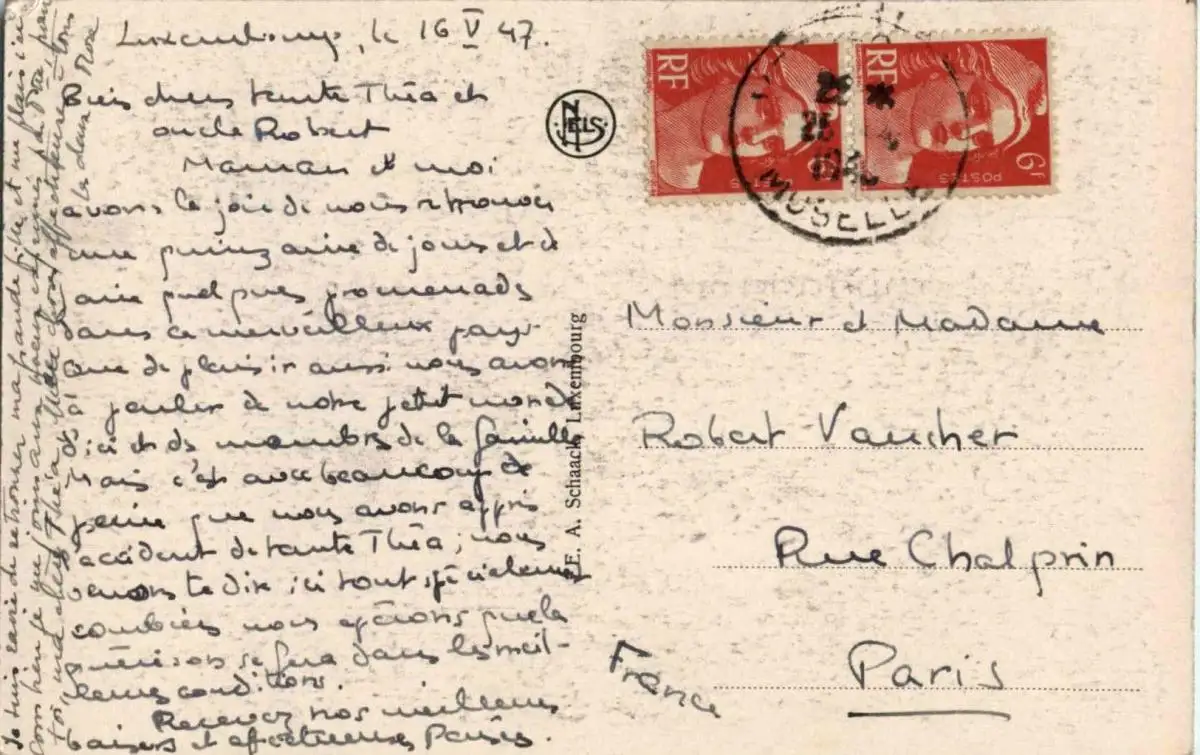 Luxembourg, le 16 V 47.
Bien chers tante Théa et
oncle Robert
Maman et moi
avons la joie de nous retrouver
une quinzaine de jours et de
faire quelques promenades
dans ce merveilleux pays.
Que de plaisir aussi nous avons
à parler de notre petit monde
d'ici et des membres de la famille
Mais c'est avec beaucoup de
peine que nous avons appris
l'accident de tante Théa; nous
venons te dire ici tout spécialement
combien nous espérons que la
guérison se fera dans les meil-
leures conditions.
Recevez nos meilleurs
baisers et affectueuses Pensées.
Je suis ravie de retrouver ma grande fille et
Combien je forme aussi
toi, ma chère Théa
NELS
E. A. Schaack, Luxembourg
RF
RF
6F
POSTES
MOSELLE
Monsieur et Madame
Robert Vaucher
Rue Chalgrin
Paris
France